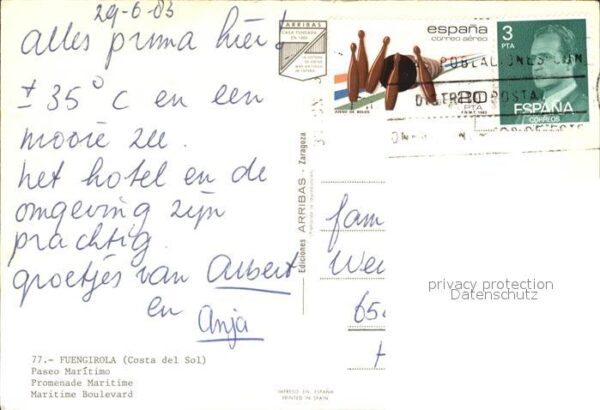 29-6-83
Alles prima hier!
± 35° C en een
mooie zee.
het hotel en de
omgeving zijn
prachtig.
groetjes van Albert
en
Anja
77.- FUENGIROLA (Costa del Sol)
Paseo Marítimo
Promenade Maritime
Maritime Boulevard
ARRIBAS
CASA FUNDADA
Ediciones ARRIBAS - Zaragoza
IMPRESO EN ESPAÑA
PRINTED IN SPAIN
españa
correo aéreo
JUEGO DE BOLOS
PTA
3
PTA
ESPAÑA
CORREOS
POBLACIONES CON
POSTAL
fam
65
privacy protection
Datenschutz